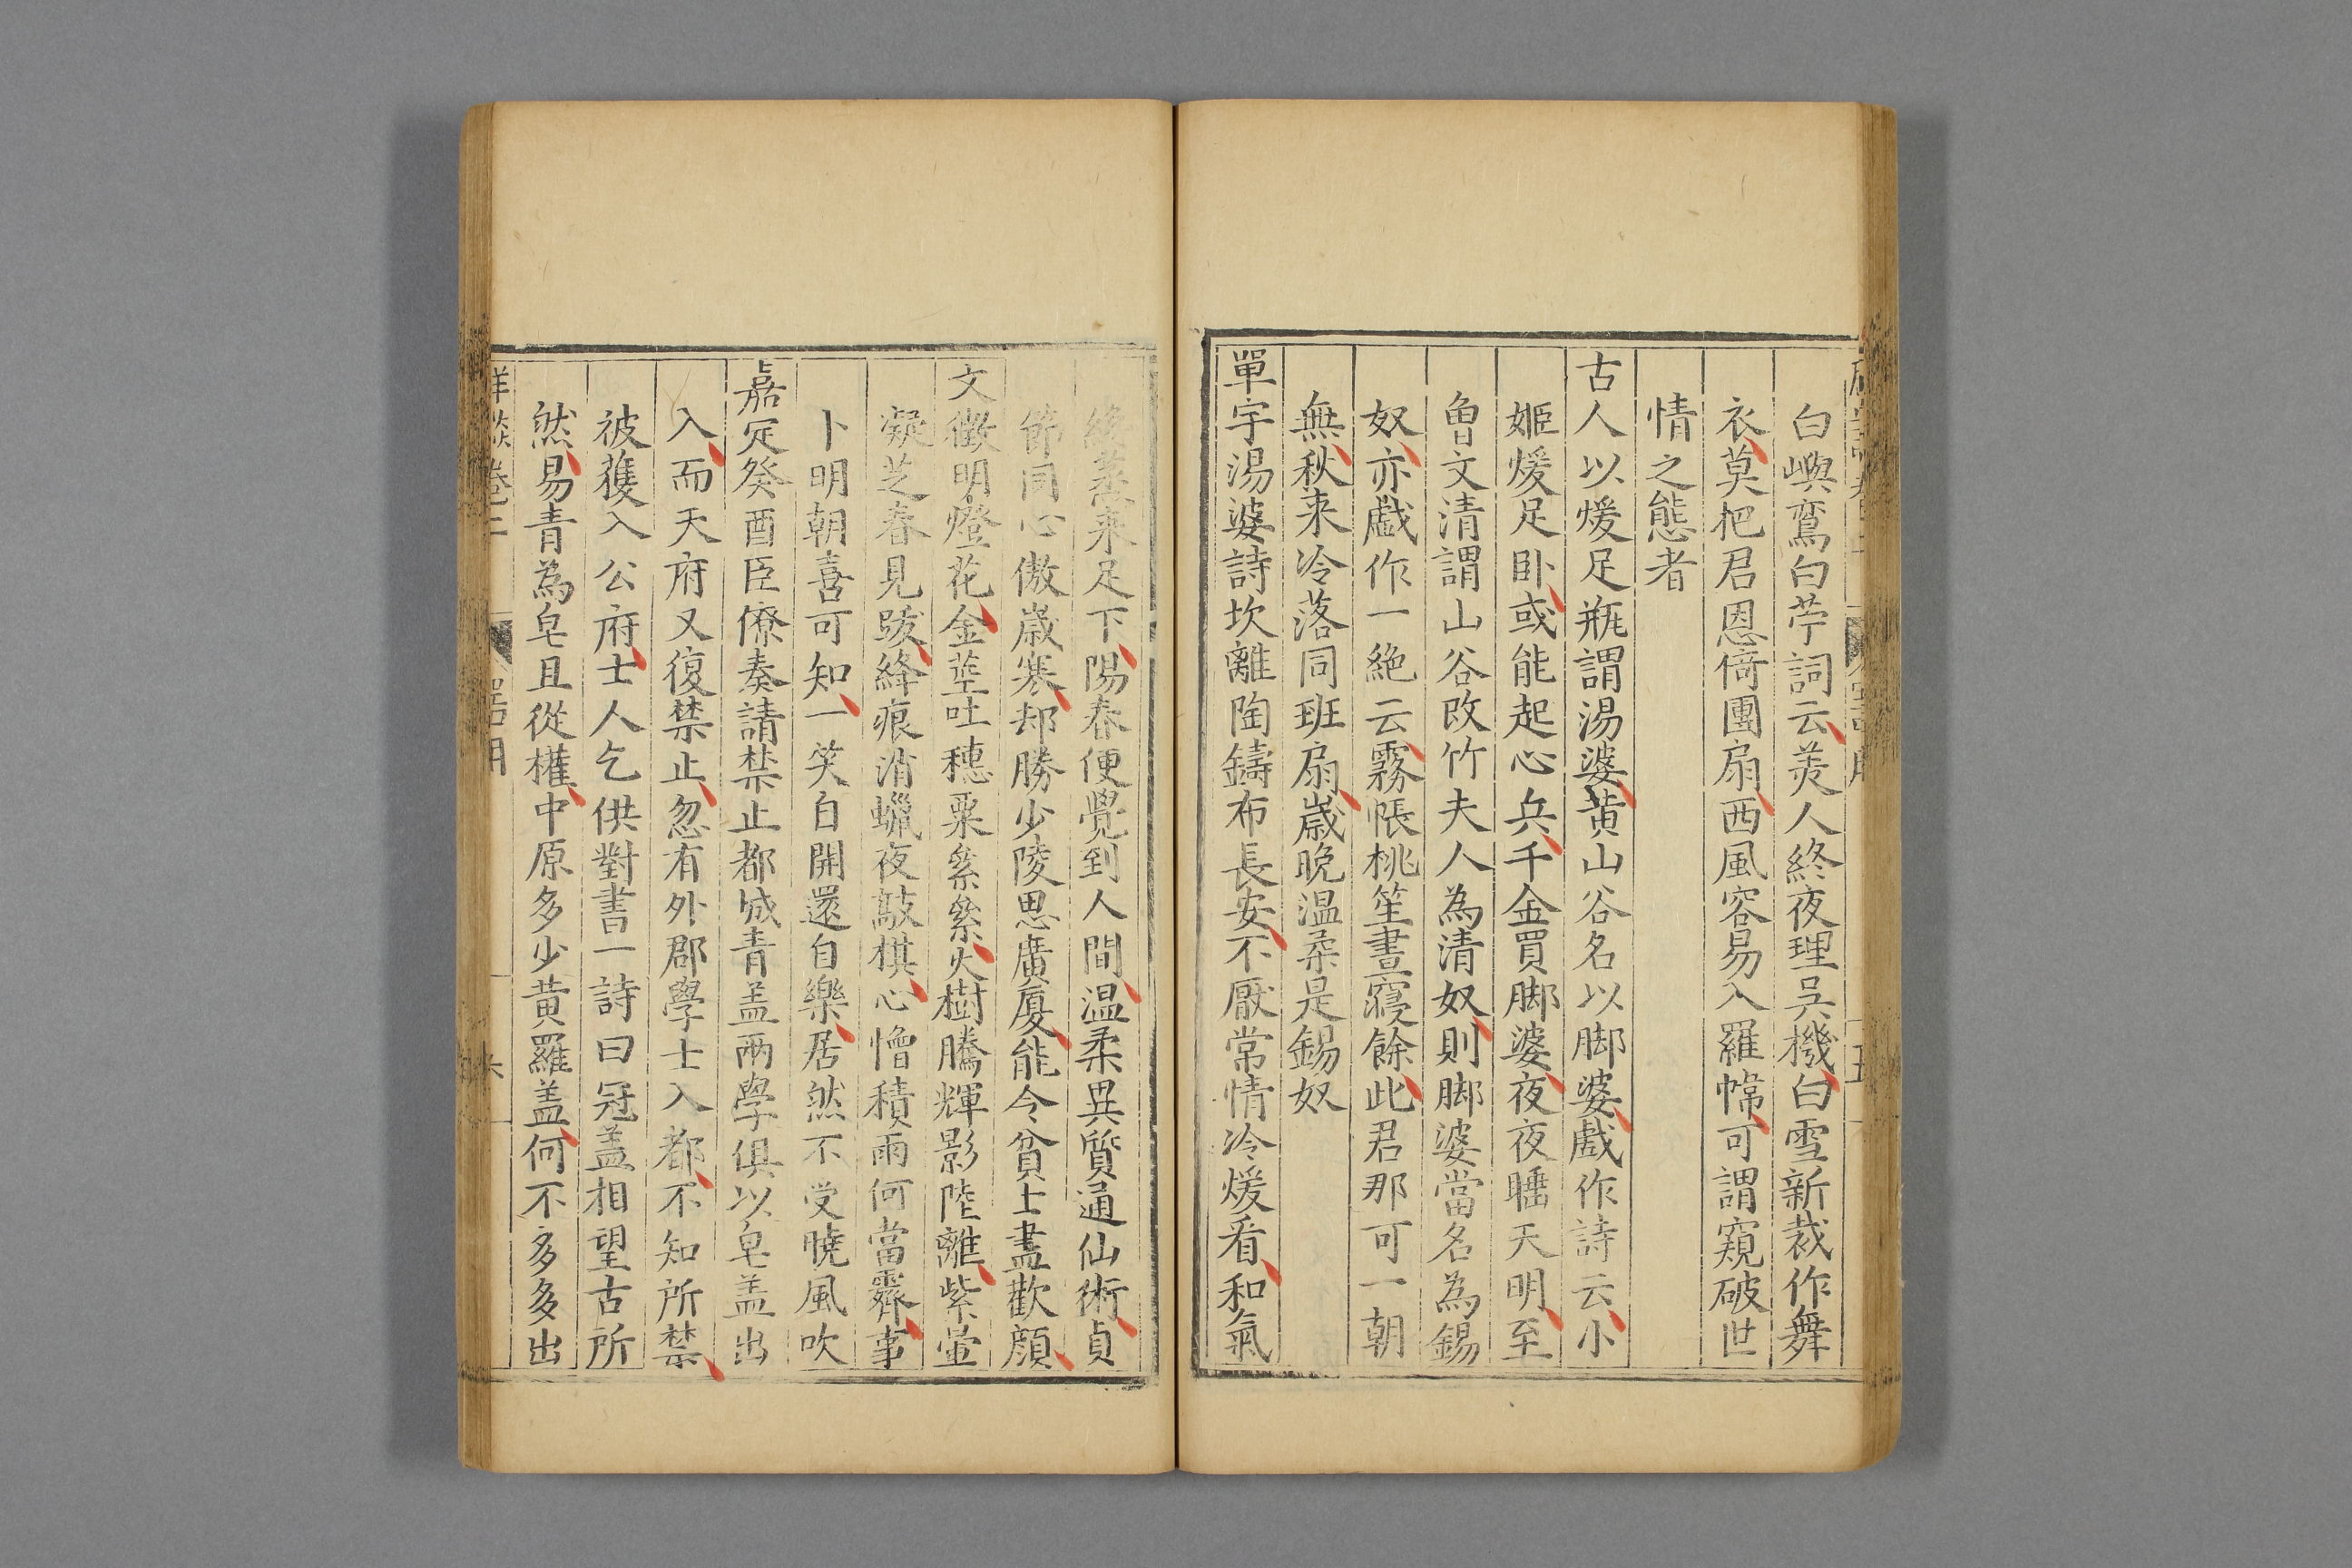 白嶼鸞白苧詞云羙人終夜理吳機白雪新裁作舞
衣莫把君恩倚團扇西風容易入羅幃可謂窺破世
情之態者
古人以煖足瓶謂湯婆黄山谷名以脚婆戲作詩云小
姬煖足卧或能起心兵千金買脚婆夜夜睡天明至
魯文清謂山谷改竹夫人為清奴則脚婆當名為錫
奴亦戲作一絶云霧帳桃笙晝寢餘此君那可一朝
無秋来冷落同班扇歳晩温柔是錫奴
單宇湯婆詩坎離陶鑄布長安不厭常情冷煖看和氣
蒸来足下陽春便覺到人間温柔異質通仙術貞
節同心傲歳寒却勝少陵思廣廈能令貧士盡歡顔
文徵明燈花金莖吐穗粟纍纍火樹騰輝影陸離紫暈
凝芝春見跋絳痕消蠟夜敲棋心憎積雨何當霽事
卜明朝喜可知一笑自開還自樂居然不受曉風吹
嘉㝎癸酉臣僚奏請禁止都城青盖两學俱以皂盖出
入而天府又復禁止忽有外郡學士入都不知所禁
被獲入公府士人乞供對書一詩曰冠盖相望古所
然易青為皂且從權中原多少黄羅盖何不多多出
卷二